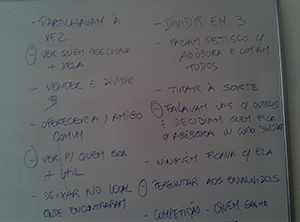 - PARTILHAVAM À
VEZ
- VER QUEM PRECISAVA
+ DELA
- VENDER E DIVIDIR
$
- OFERECER A 1 AMIGO
COMUM
- VER P/ QUEM ERA
+ ÚTIL
- DEIXAR NO LOCAL
ONDE ENCONTRARAM
- DIVIDIR EM 3
- FAZIAM PETISCO C/
ABÓBORA E COMIAM
TODOS
- TIRAR À SORTE
- FALAVAM UNS C/ OUTROS
E DECIDIAM QUEM FICA
C/ ABÓBORA
- NINGUÉM FICAVA C/ ELA
- PERGUNTAR AOS ENVOLVIDOS
- COMPETIÇÃO - QUEM GANHA